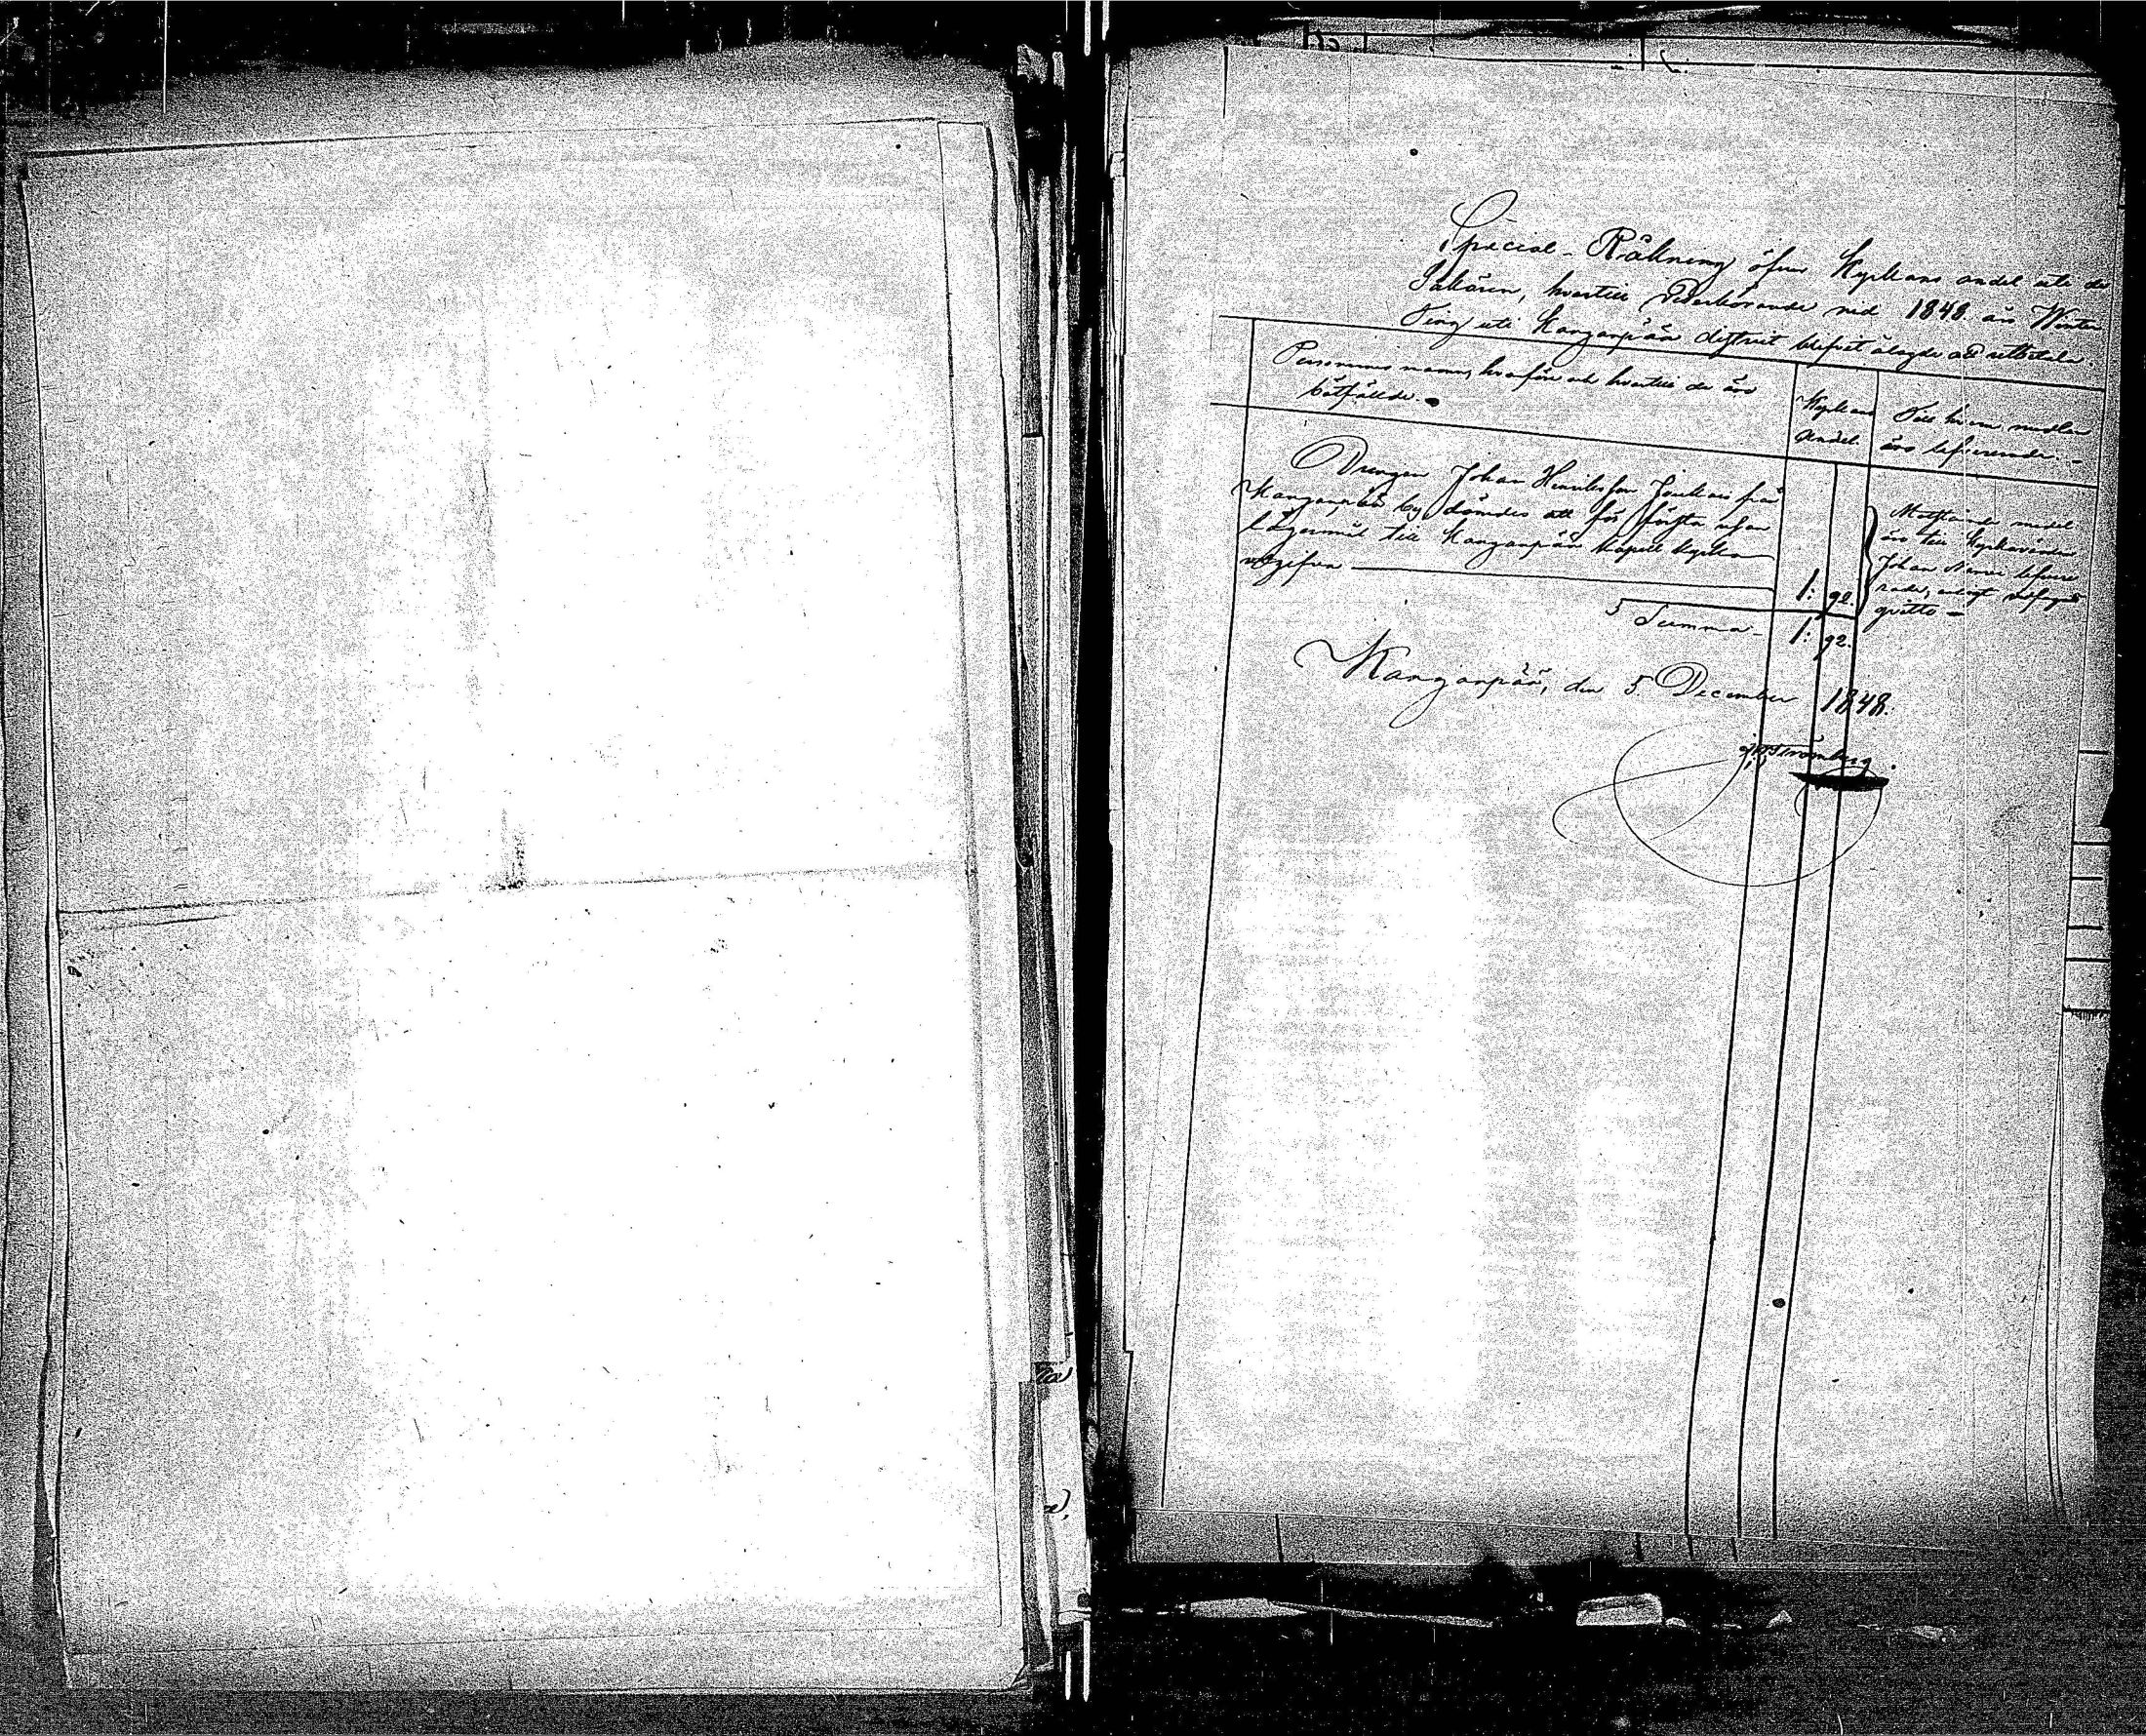 Special-Räkning öfver Kyrkans andel uti de
Sakören, hvartill Vederbörande vid 1848 års Winter
Ting uti Kanganpää district blifvit ålagde att utbetala.
Personernes namn, hvarföre och hvartill de äro
bötfällde.
Kyrkans
andel.
Till hvem medlen
äro lefvererade.
Drengen Johan Henriksson från
Kanganpää by dömdes att för första resan
lägersmål till Kanganpää Kapell Kyrka
utgifva
1: 92.
Motstående medel
äro till Kyrkovärden
Johan lefvere
rade, enligt
qvitto
Summa 1: 92.
Kanganpää, den 5 December 1848.
Strömberg.